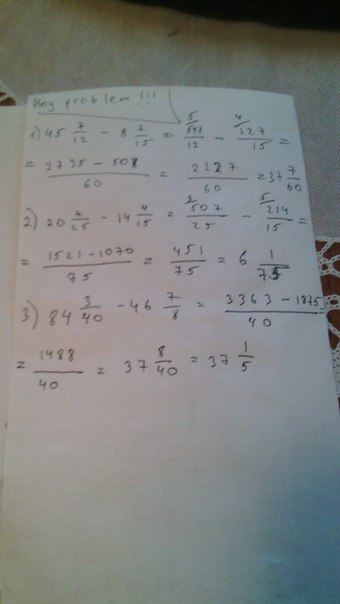 Moy problem !!!
1) 45 7/12 - 8 7/15 = 5/ 547/12 - 4/ 127/15 =
= 2735 - 508 / 60 = 2227 / 60 = 37 7/60
2) 20 7/25 - 14 4/15 = 2 507/25 - 5/ 214/15 =
= 1521 - 1070 / 75 = 451 / 75 = 6 1/75
3) 84 3/40 - 46 7/8 = 3363 - 1875 / 40
= 1488 / 40 = 37 8/40 = 37 1/5